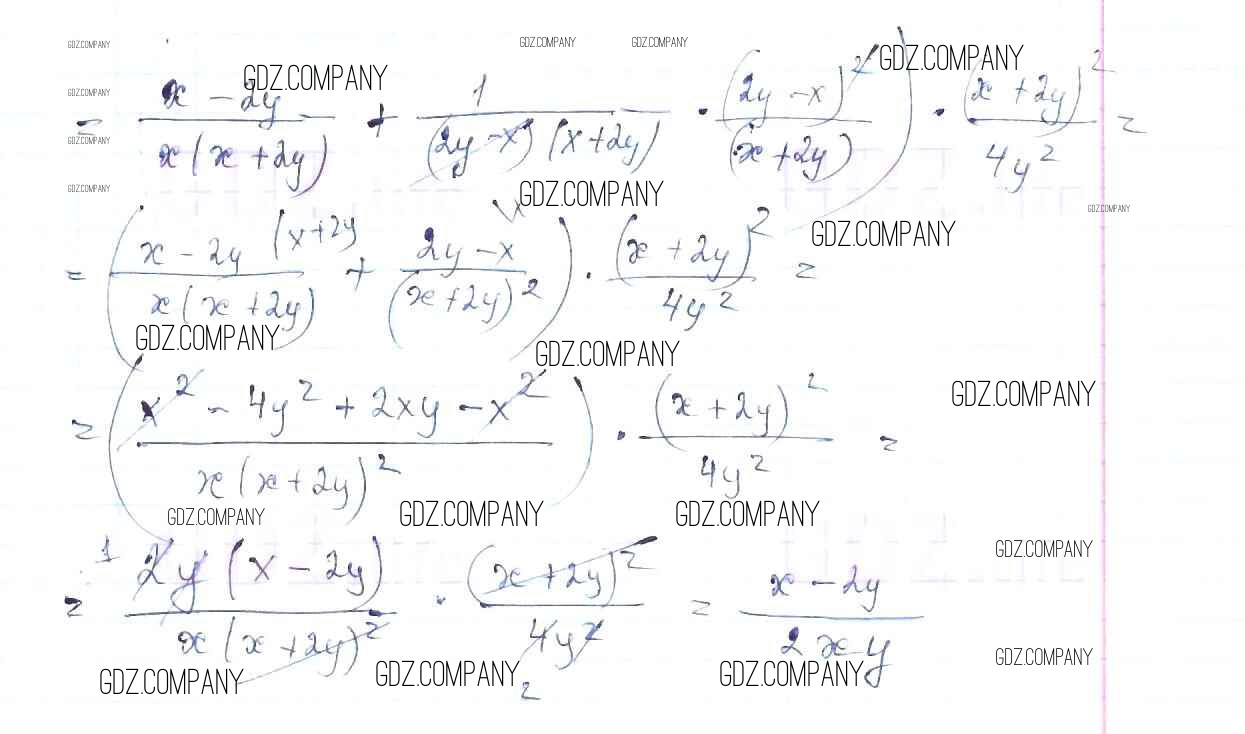 GDZ.COMPANY GDZ.COMPANY GDZ.COMPANY
GDZ.COMPANY GDZ.COMPANY
GDZ.COMPANY
= x - 2y / x(x + 2y) + 1 / (2y - x)(x + 2y) · (2y - x)² / (x + 2y)) · (x + 2y)² / 4y² =
GDZ.COMPANY
GDZ.COMPANY GDZ.COMPANY
GDZ.COMPANY
GDZ.COMPANY
= (x - 2y (x + 2y / x(x + 2y) + 2y - x \x / (x + 2y)²) · (x + 2y)² / 4y² =
GDZ.COMPANY GDZ.COMPANY
GDZ.COMPANY
= (x² - 4y² + 2xy - x² / x(x + 2y)²) · (x + 2y)² / 4y² =
GDZ.COMPANY GDZ.COMPANY GDZ.COMPANY
GDZ.COMPANY
= 1 2y(x - 2y) / x(x + 2y)² · (x + 2y)² / 4y² 2 = x - 2y / 2xy
GDZ.COMPANY
GDZ.COMPANY GDZ.COMPANY GDZ.COMPANY